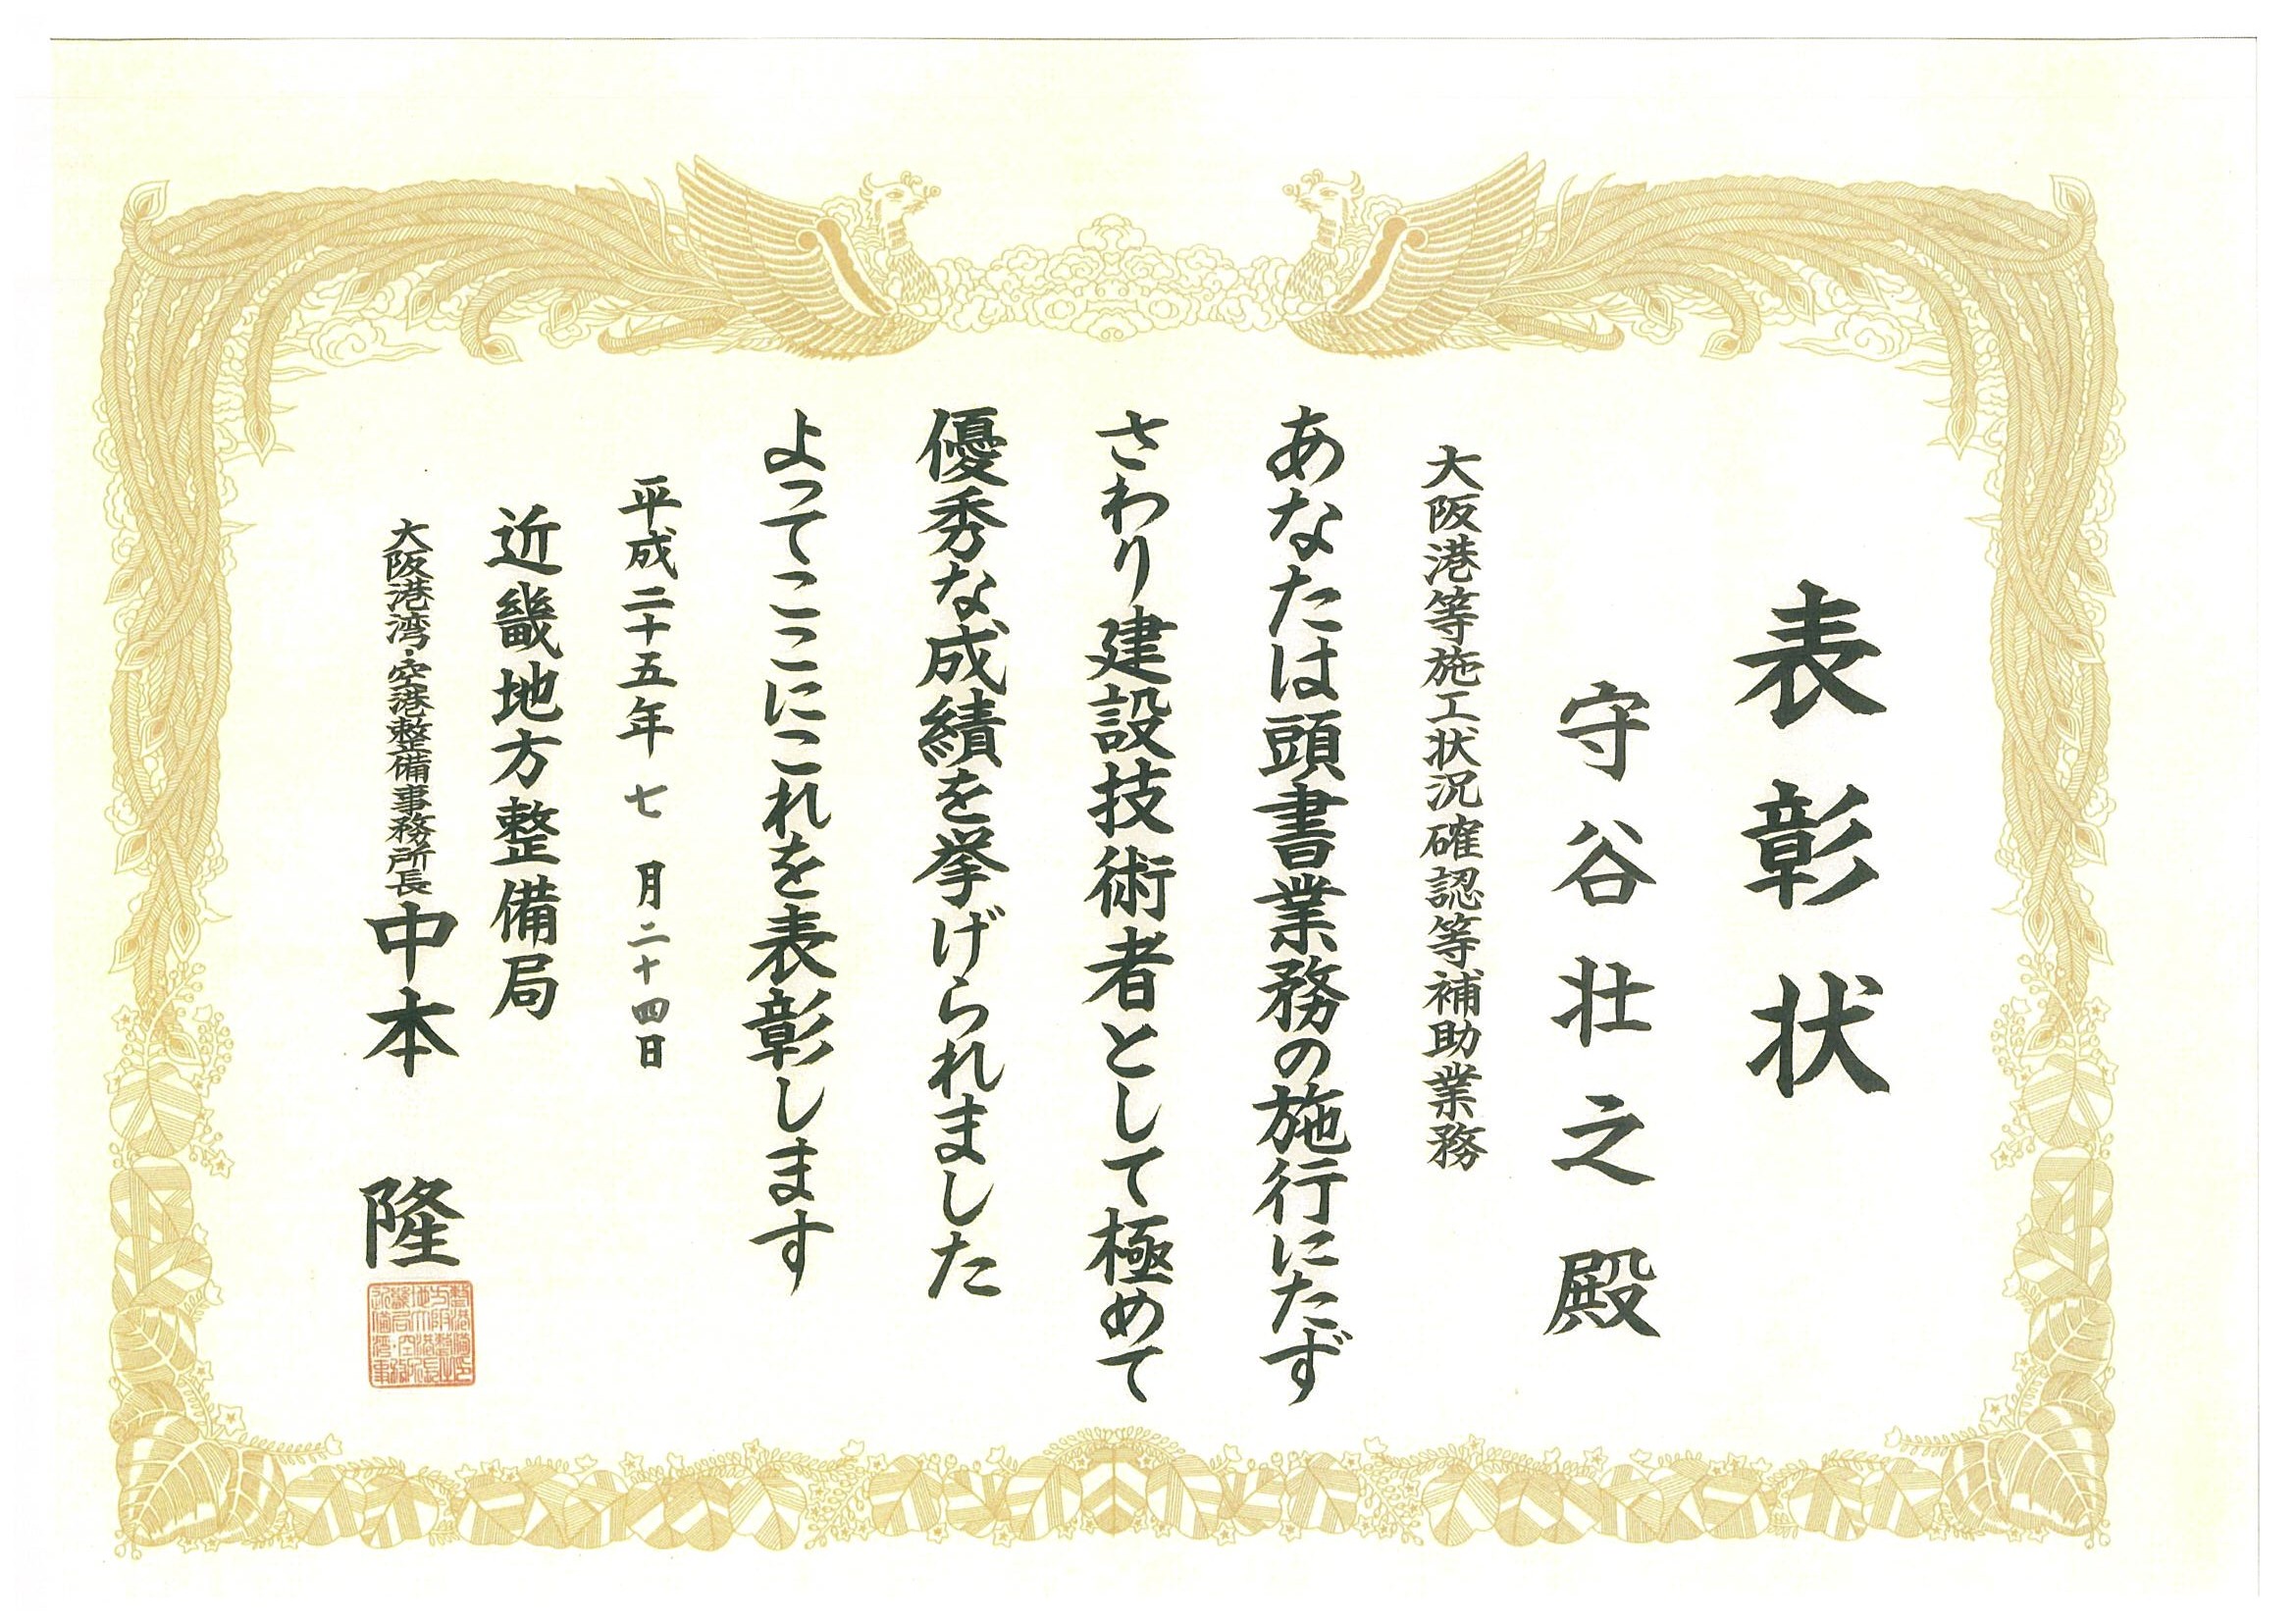 表彰状
守谷壮之殿
大阪港等施工状況確認等補助業務
あなたは頭書業務の施行にたず
さわり建設技術者として極めて
優秀な成績を挙げられました
よってここにこれを表彰します
平成二十五年七月二十四日
近畿地方整備局
大阪港湾・空港整備事務所長 中本 隆